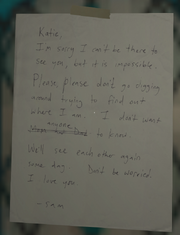 Katie,
I'm sorry I can't be there to
see you, but it is impossible.
Please, please don't go digging
around trying to find out
where I am. I don't want
anyone
to know.
We'll see each other again
some day. Don't be worried.
I love you.
- Tom